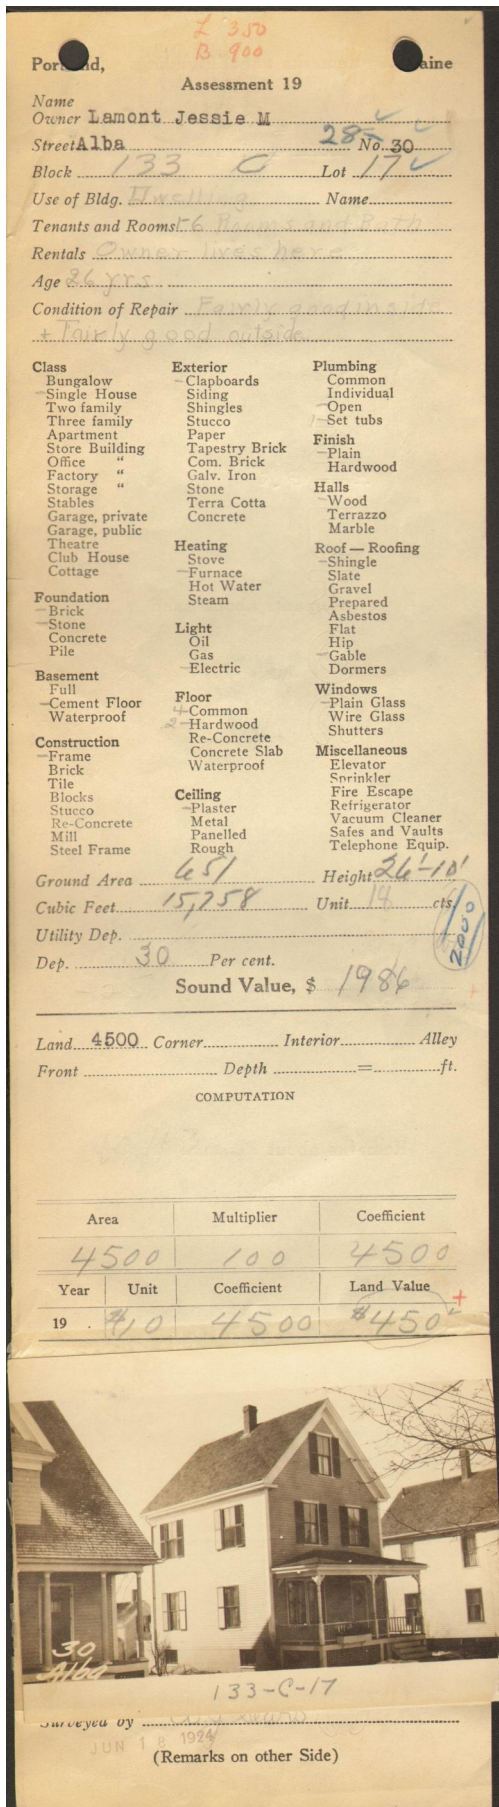 L 350
B 900
Portland, Maine
Assessment 19
Name
Owner Lamont Jessie M
Street Alba 28- No. 30
Block 133 C Lot 17
Use of Bldg. Dwelling Name
Tenants and Rooms 1-6 Rooms and Bath
Rentals Owner lives here
Age 26 yrs
Condition of Repair Fairly good inside
+ Fairly good outside
Class
Bungalow
Single House
Two family
Three family
Apartment
Store Building
Office "
Factory "
Storage "
Stables
Garage, private
Garage, public
Theatre
Club House
Cottage
Foundation
Brick
Stone
Concrete
Pile
Basement
Full
Cement Floor
Waterproof
Construction
Frame
Brick
Tile
Blocks
Stucco
Re-Concrete
Mill
Steel Frame
Exterior
Clapboards
Siding
Shingles
Stucco
Paper
Tapestry Brick
Com. Brick
Galv. Iron
Stone
Terra Cotta
Concrete
Heating
Stove
Furnace
Hot Water
Steam
Light
Oil
Gas
Electric
Floor
4 Common
2 Hardwood
Re-Concrete
Concrete Slab
Waterproof
Ceiling
Plaster
Metal
Panelled
Rough
Plumbing
Common
Individual
Open
1 Set tubs
Finish
Plain
Hardwood
Halls
Wood
Terrazzo
Marble
Roof — Roofing
Shingle
Slate
Gravel
Prepared
Asbestos
Flat
Hip
Gable
Dormers
Windows
Plain Glass
Wire Glass
Shutters
Miscellaneous
Elevator
Sprinkler
Fire Escape
Refrigerator
Vacuum Cleaner
Safes and Vaults
Telephone Equip.
Ground Area 651 Height 26'-10'
Cubic Feet 15,758 Unit 18 cts.
2000
Utility Dep.
Dep. 30 Per cent.
Sound Value, $ 1986
Land 4500 Corner Interior Alley
Front Depth = ft.
COMPUTATION
Area Multiplier Coefficient
4500 100 4500
Year Unit Coefficient Land Value
19 . $10 4500 $450 +
30
Alba
133-C-17
Surveyed by
JUN 18 1924
(Remarks on other Side)